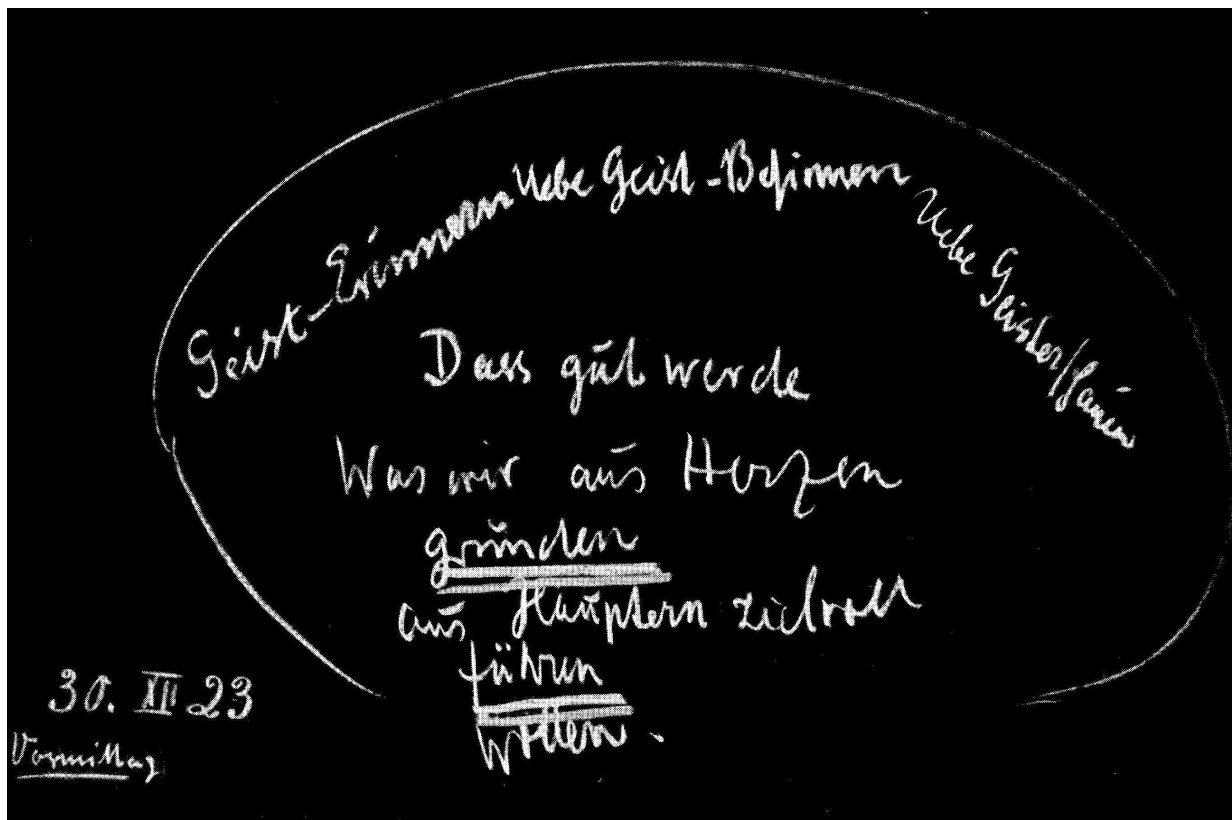 Geist-Erinnern
Uebe Geist-Besinnen
Uebe Geisterschauen
Dass gut werde
Was wir aus Herzen
gründen
aus Häuptern zielvoll
führen
wollen.
30. XII 23
Vormittag